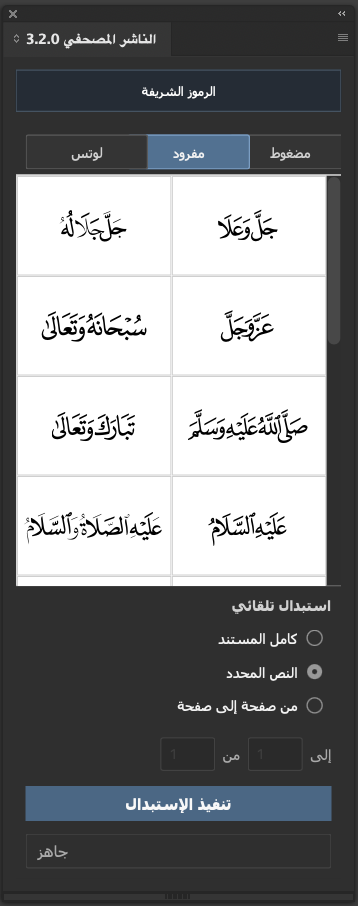 الناشر المصحفي 3.2.0
الرموز الشريفة
مضغوط مفرود لوتس
جَلَّ وَعَلَا جَلَّ جَلَالُهُ
عَزَّ وَجَلَّ سُبْحَانَهُ وَتَعَالَىٰ
صَلَّى اللَّهُ عَلَيْهِ وَسَلَّمَ تَبَارَكَ وَتَعَالَىٰ
عَلَيْهِ السَّلَامُ عَلَيْهِ الصَّلَاةُ وَالسَّلَامُ
استبدال تلقائي
كامل المستند
النص المحدد
من صفحة إلى صفحة
إلى 1 من 1
تنفيذ الإستبدال
جاهز